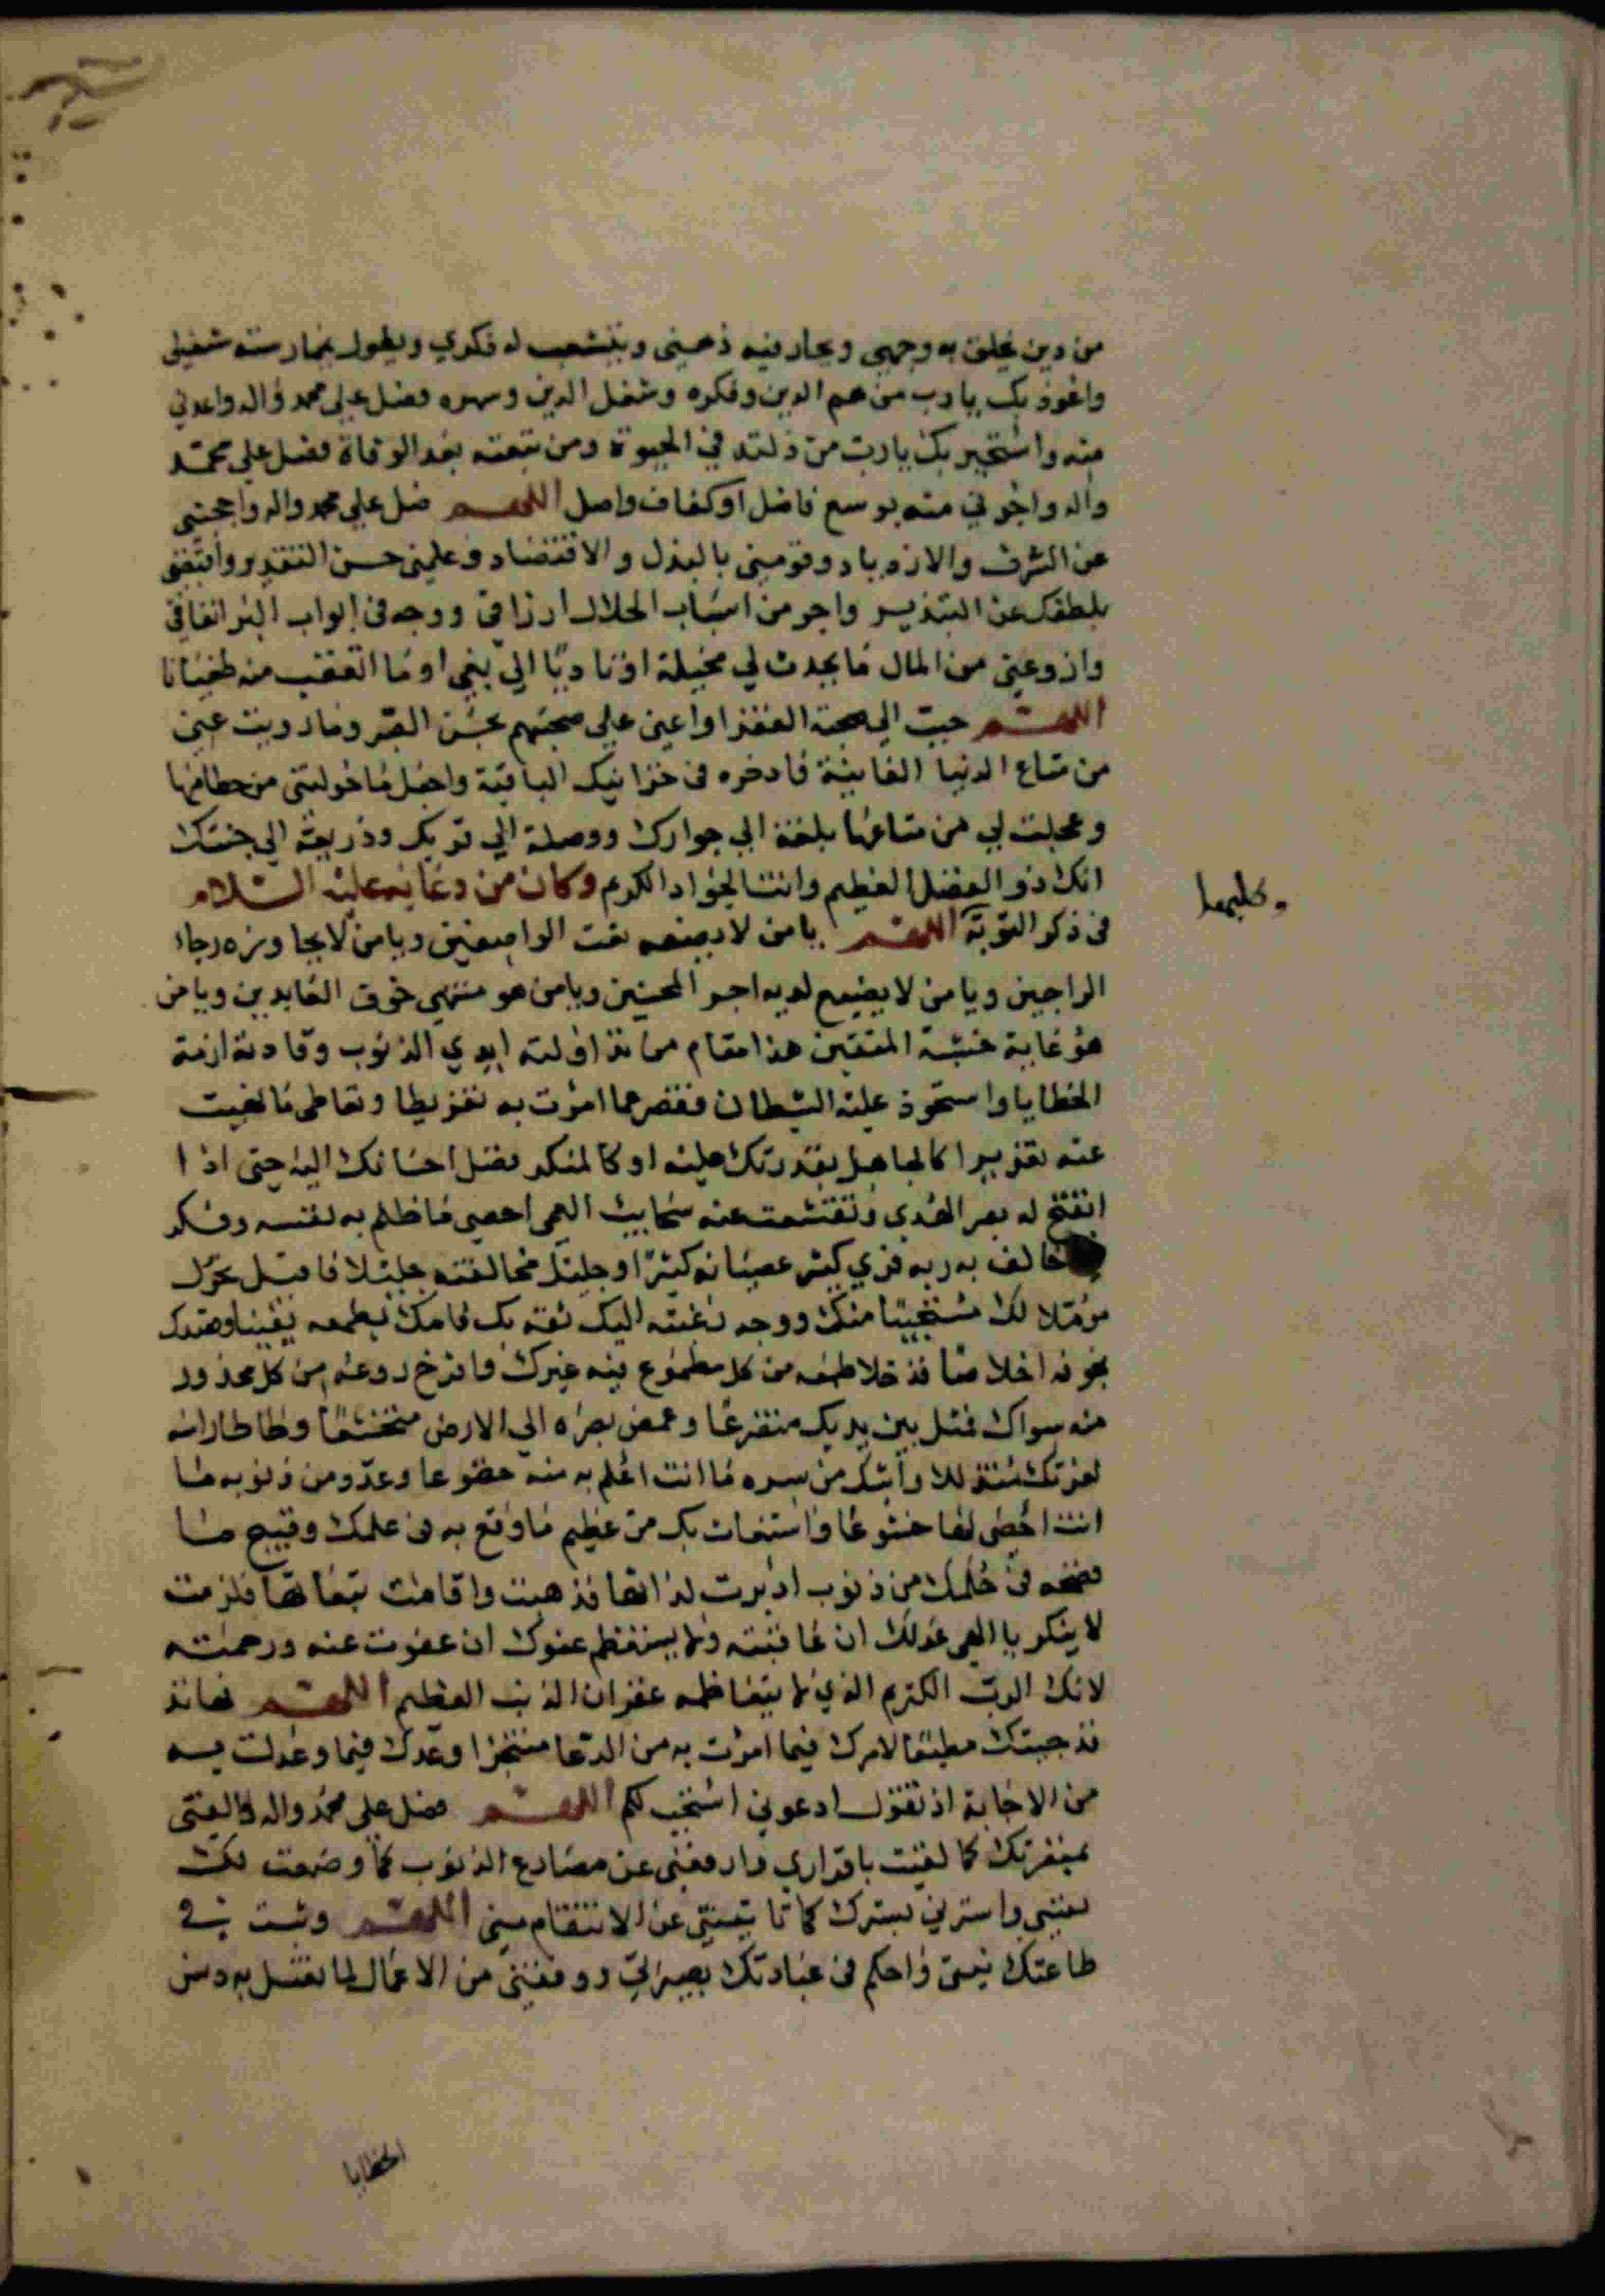 من دين يخلق به وجهي ويحار فيه ذهني ويتشعب له فكري ويطول بممارسته شغلي
واعوذ بك يا رب من هم الدين وفكره وشغل الدين وسهره فصل على محمد واله واعذني
منه واستجير بك يا رب من ذلته في الحيوة ومن تبعته بعد الوفاة فصل على محمد
واله واجرني منه بوسع فاضل او كفاف واصل اللهم صل على محمد واله واحجبني
عن السرف والازدياد وقومني بالبذل والاقتصاد وعلمني حسن التقدير واقبضني
بلطفك عن التبذير واجر من اسباب الحلال ارزاقي ووجه في ابواب البر انفاقي
وازو عني من المال ما يحدث لي مخيلة او تاديا الى بغي او ما اتعقب منه طغيانا
اللهم حبب الي صحبة الفقرا واعني على صحبتهم بحسن الصبر وما زويت عني
من متاع الدنيا الفانية فادخره في خزاينك الباقية واجعل ما خولتني من حطامها
وعجلت لي من متاعها بلغة الى جوارك ووصلة الى قربك وذريعة الى جنتك
انك ذو الفضل العظيم وانت الجواد الكريم وكان من دعائه عليه السلام
في ذكر التوبة اللهم يا من لا يصفه نعت الواصفين ويا من لا يجاوزه رجاء
الراجين ويا من لا يضيع لديه اجر المحسنين ويا من هو منتهى خوف العابدين ويا من
هو غاية خشية المتقين هذا مقام من تداولته ايدي الذنوب وقادته ازمة
الخطايا واستحوذ عليه الشيطان فقصر عما امرت به تفريطا وتعاطى ما نهيت
عنه تغريرا كالجاهل بقدرتك عليه او كالمنكر فضل احسانك اليه حتى اذا
انفتح له بصر الهدى وتقشعت عنه سحايب العمى احصى ما ظلم به نفسه وفكر
فيما خالف به ربه فراى كثير عصيانه كثيرا وجليل مخالفته جليلا فاقبل نحوك
مؤملا لك مستحييا منك ووجه رغبته اليك ثقة بك فامك بطمعه يقينا وقصدك
بخوفه اخلاصا قد خلا طمعه من كل مطموع فيه غيرك وافرخ روعه من كل محذور
منه سواك فمثل بين يديك متضرعا وغمض بصره الى الارض متخشعا وطاطا راسه
لعزتك متذللا وابثك من سره ما انت اعلم به منه خضوعا وعدد من ذنوبه ما
انت احصى لها خشوعا واستغاث بك من عظيم ما وقع به في علمك وقبيح ما
فضحه في حكمك من ذنوب ادبرت لذاتها فذهبت واقامت تبعاتها فلزمت
لا ينكر يا الهي عدلك ان عاقبته ولا يستعظم عفوك ان عفوت عنه ورحمته
لانك الرب الكريم الذي لا يتعاظمه غفران الذنب العظيم اللهم فها انا ذا
قد جئتك مطيعا لامرك فيما امرت به من الدعا متنجزا وعدك فيما وعدت به
من الاجابة اذ تقول ادعوني استجب لكم اللهم فصل على محمد واله والقني
بمغفرتك كما لقيتك باقراري وارفعني عن مصارع الذنوب كما وضعت لك
نفسي واسترني بسترك كما تانيتني عن الانتقام مني اللهم وثبت في
طاعتك نيتي واحكم في عبادتك بصيرتي ووفقني من الاعمال لما تغسل به دنس
الخطايا